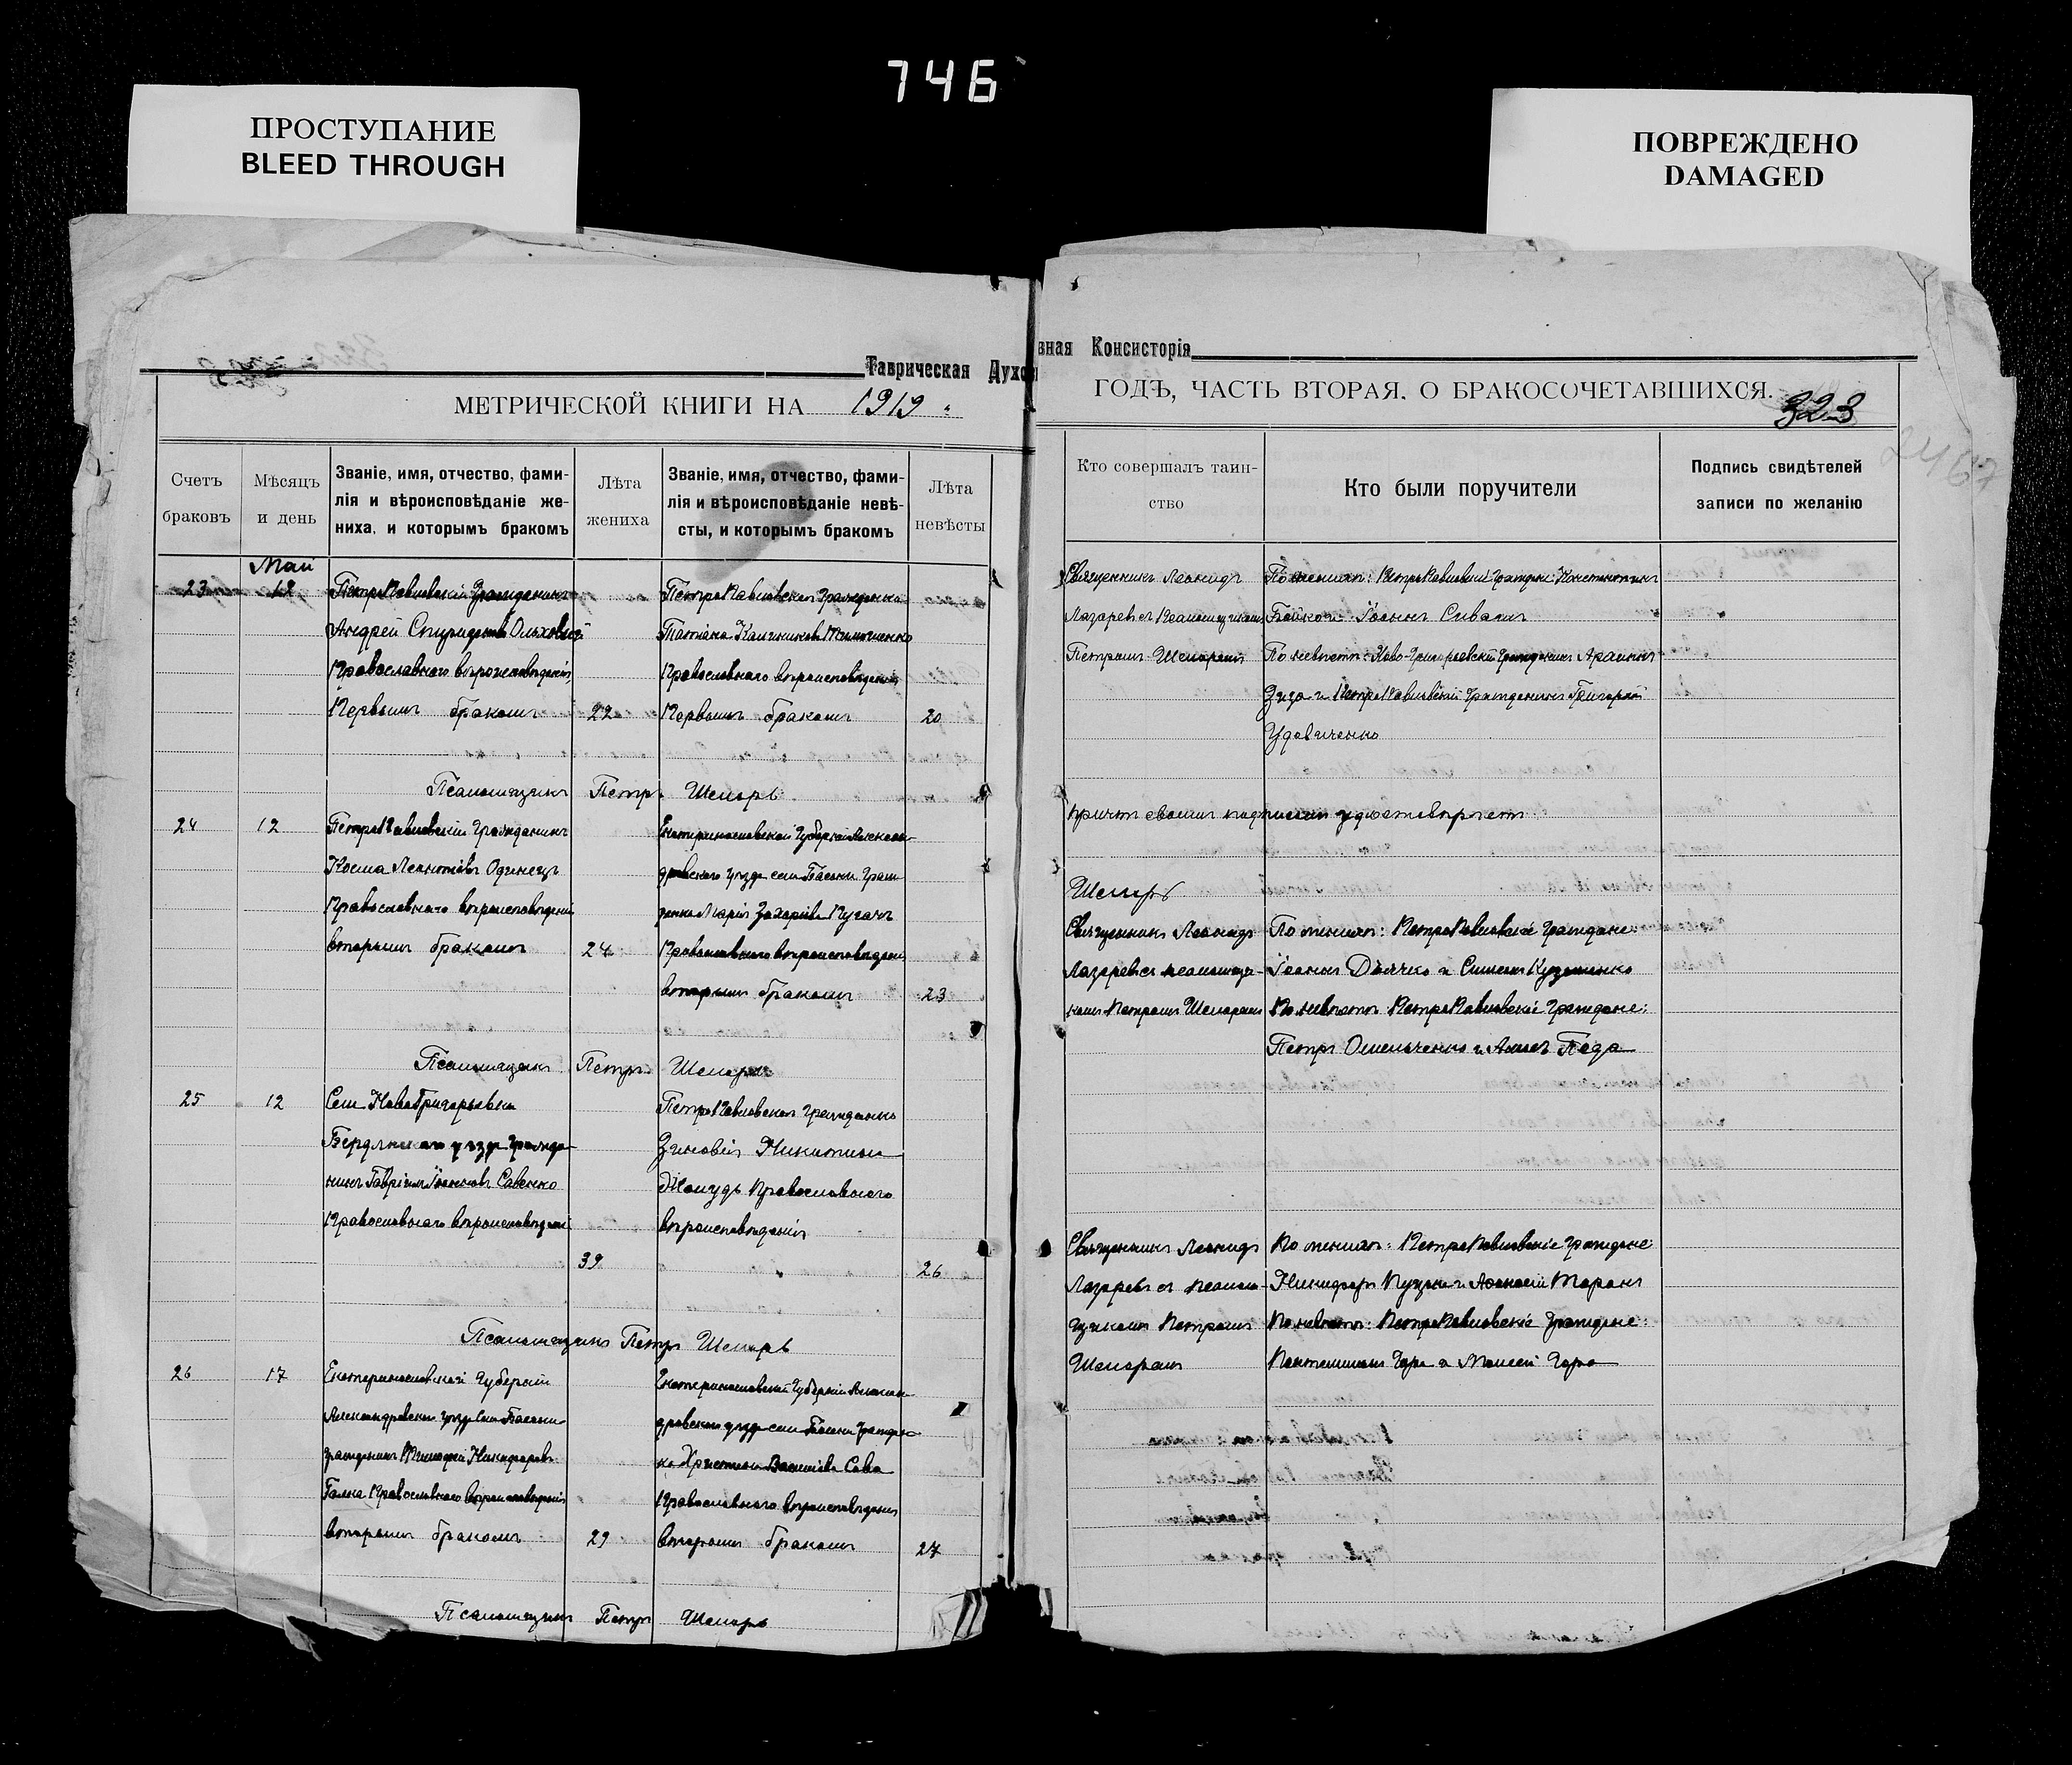 746
ПРОСТУПАНИЕ
BLEED THROUGH
ПОВРЕЖДЕНО
DAMAGED
Таврическая Духовная Консисторія
МЕТРИЧЕСКОЙ КНИГИ НА 1919
ГОДЪ, ЧАСТЬ ВТОРАЯ. О БРАКОСОЧЕТАВШИХСЯ.
323
2467
Счетъ браковъ
Мѣсяцъ и день
Званіе, имя, отчество, фами-
лія и вѣроисповѣданіе же-
ниха, и которымъ бракомъ
Лѣта жениха
Званіе, имя, отчество, фами-
лія и вѣроисповѣданіе невѣ-
сты, и которымъ бракомъ
Лѣта невѣсты
Кто совершалъ таин-
ство
Кто были поручители
Подпись свидѣтелей
записи по желанію
Май
23
12
ПетроПавловскій Гражданинъ
Андрей Спиридоновъ Ольховскій
Православнаго вѣроисповѣданія,
Первымъ бракомъ
22
ПетроПавловская Гражданка
Татіана Калиникова
Православнаго вѣроисповѣданія
Первымъ бракомъ
20
Священникъ Леонидъ
Лазаревъ съ Псаломщикомъ
Петромъ Шепаремъ
По женихѣ: ПетроПавловскіе Граждане: Константинъ
Бойко и Іоаннъ Сивашъ
По невѣстѣ: Ново-Григорьевскій Гражданинъ
и ПетроПавловскій Гражданинъ Григорій
Удовиченко
Псаломщикъ Петръ Шепарь
24
12
ПетроПавловскій Гражданинъ
Косма Леонтіевъ Одинецъ
Православнаго вѣроисповѣданія
вторымъ бракомъ
24
Екатеринославской Губерніи Алексан-
дровскаго уѣзда села Басани Граж-
данка Марія Захаріева
Православнаго вѣроисповѣданія
вторымъ бракомъ
23
Причтъ своимъ подписомъ удостовѣряетъ
Шепарь
Священникъ Леонидъ
Лазаревъ съ псаломщи-
комъ Петромъ Шепаремъ
По женихѣ: ПетроПавловскіе Граждане:
Іоаннъ Дьячко и Симеонъ Кузьменко
По невѣстѣ ПетроПавловскіе Граждане:
Петръ Омельченко и
Псаломщикъ Петръ Шепарь
25
12
Села НовоГригорьевки
Бердянскаго уѣзда Гражда-
нинъ Гавріилъ Іоанновъ Савенко
Православнаго вѣроисповѣданія
39
ПетроПавловская Гражданка
Зиновія Никитина
Православнаго
вѣроисповѣданія
26
Священникъ Леонидъ
Лазаревъ съ псалом-
щикомъ Петромъ
Шепаремъ
По женихѣ: ПетроПавловскіе Граждане:
Никифоръ и Афанасій Таранъ
По невѣстѣ: ПетроПавловскіе Граждане:
Пантелимонъ и Моисей
Псаломщикъ Петръ Шепарь
26
17
Екатеринославской Губерніи
Александровскаго уѣзда села Басани
гражданинъ Тимофей Никифоровъ
Галка Православнаго вѣроисповѣданія
вторымъ бракомъ
29
Екатеринославской Губерніи Алексан-
дровскаго уѣзда села Басани Граждан-
ка Христина Васильева Сава
Православнаго вѣроисповѣданія
вторымъ бракомъ
27
Псаломщикъ Петръ Шепарь